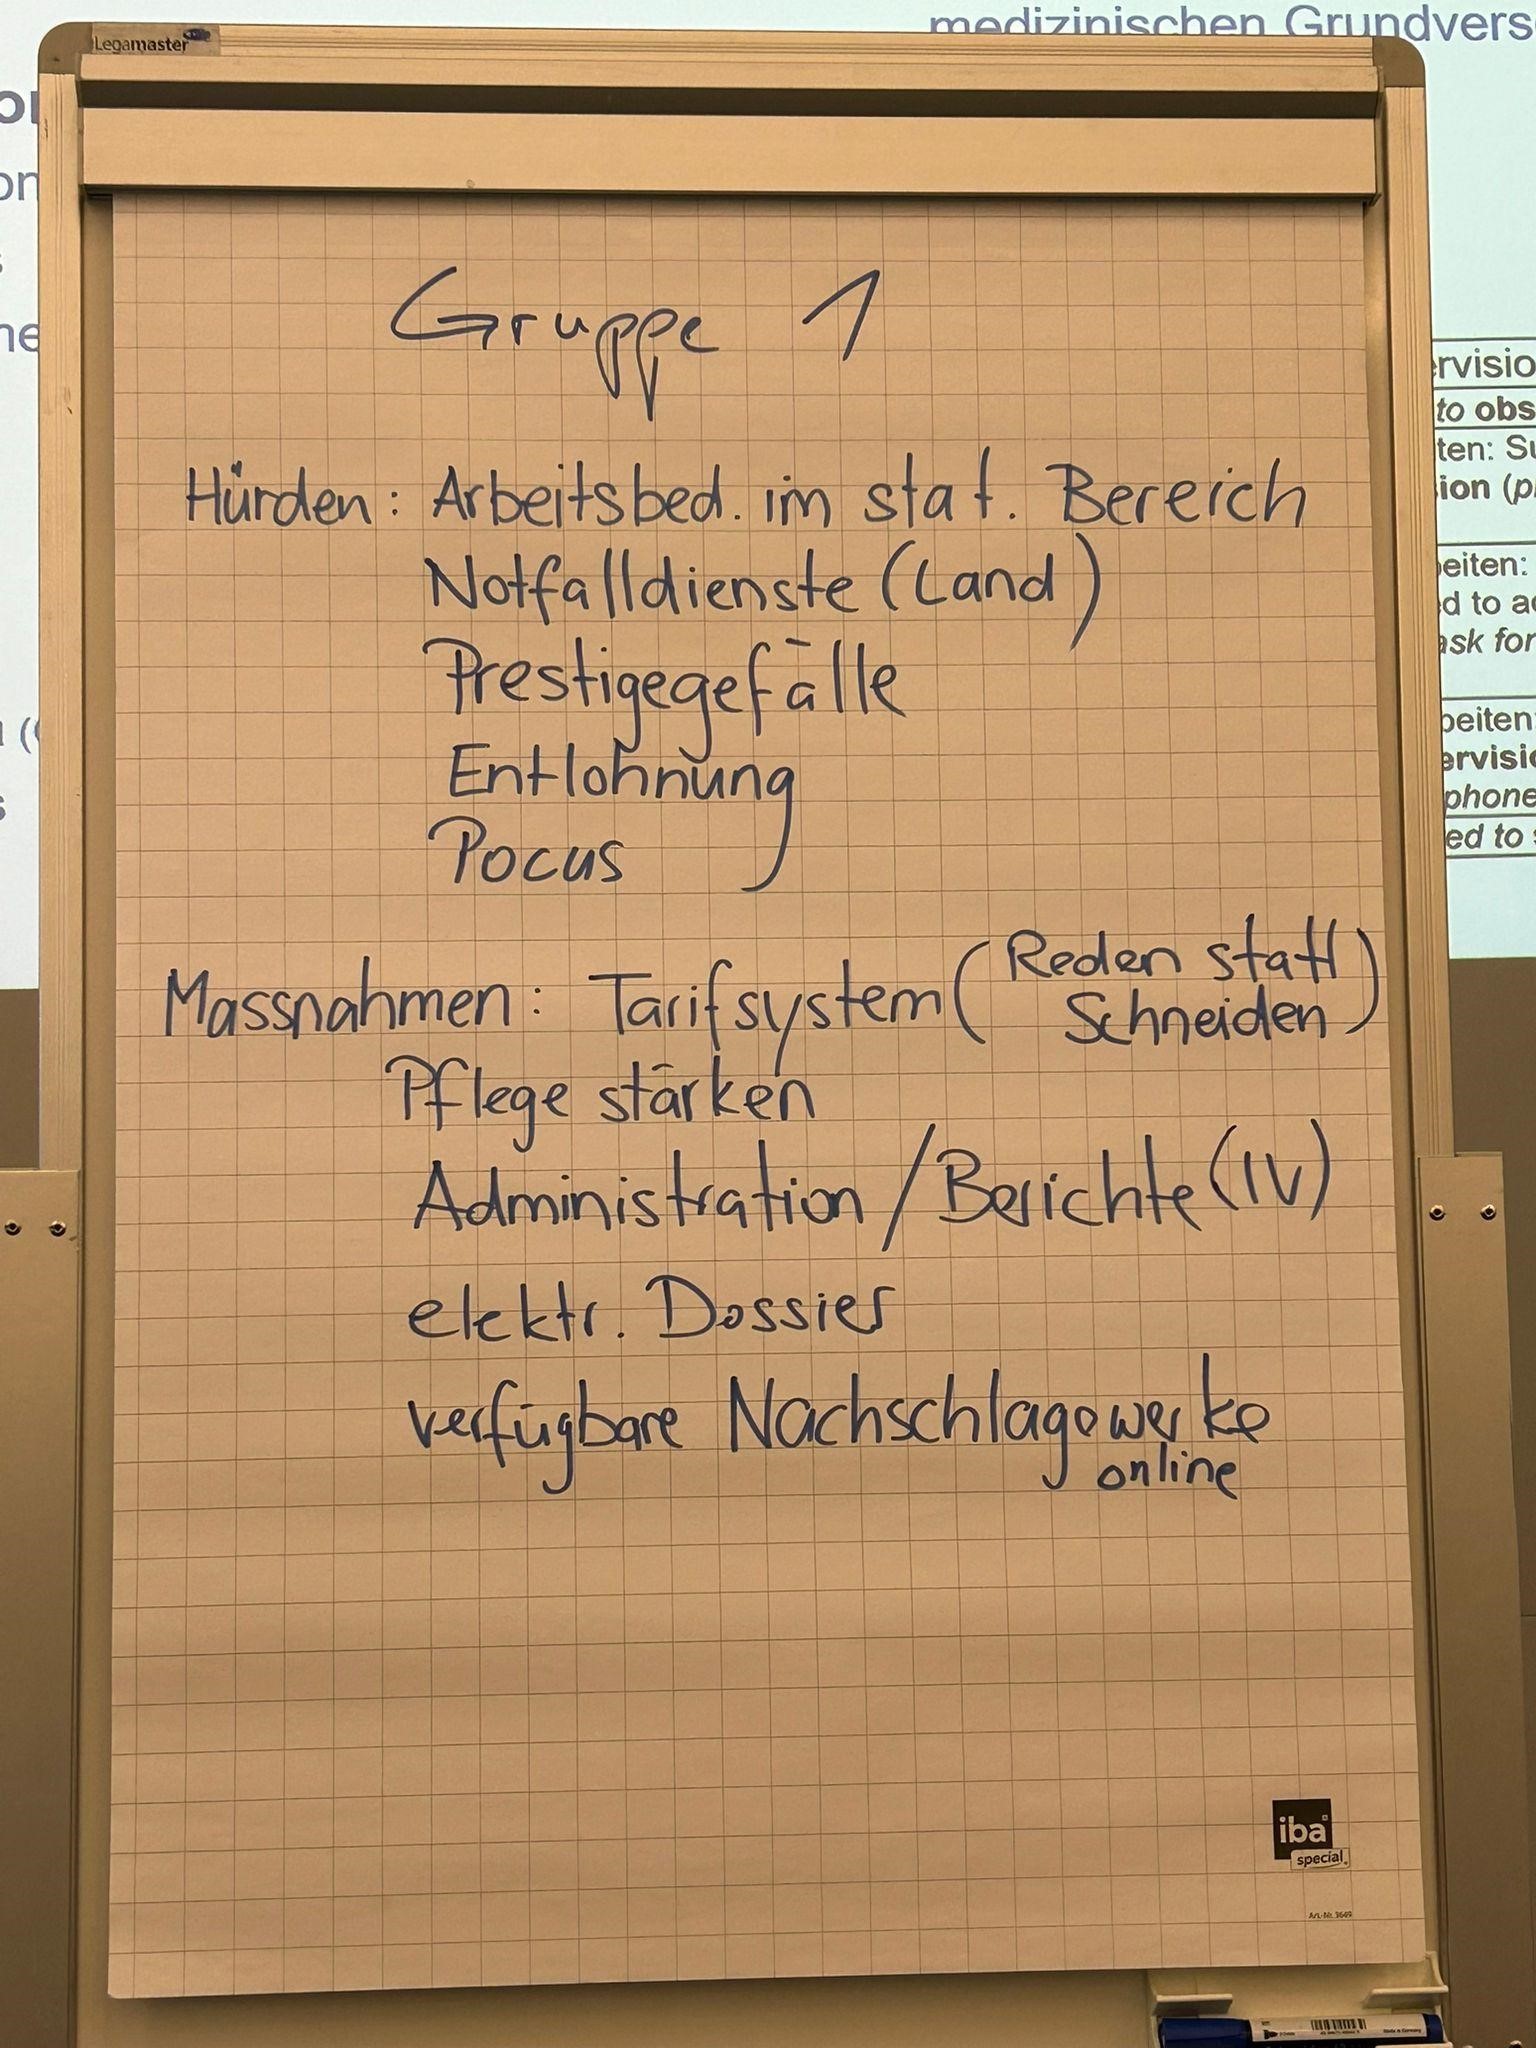 Legamaster
medizinischen Grundvers
Gruppe 1
Hürden: Arbeitsbed. im stat. Bereich
Notfalldienste (Land)
Prestigegefälle
Entlohnung
Pocus
Massnahmen: Tarifsystem (Reden statt
Schneiden)
Pflege stärken
Administration / Berichte (IV)
elektr. Dossier
verfügbare Nachschlagewerke
online
rvisio
to obs
ten: Su
ion (p
eiten:
d to a
ask for
beiten:
ervisi
phone
ed to
iba
special
Art.-Nr. 3649